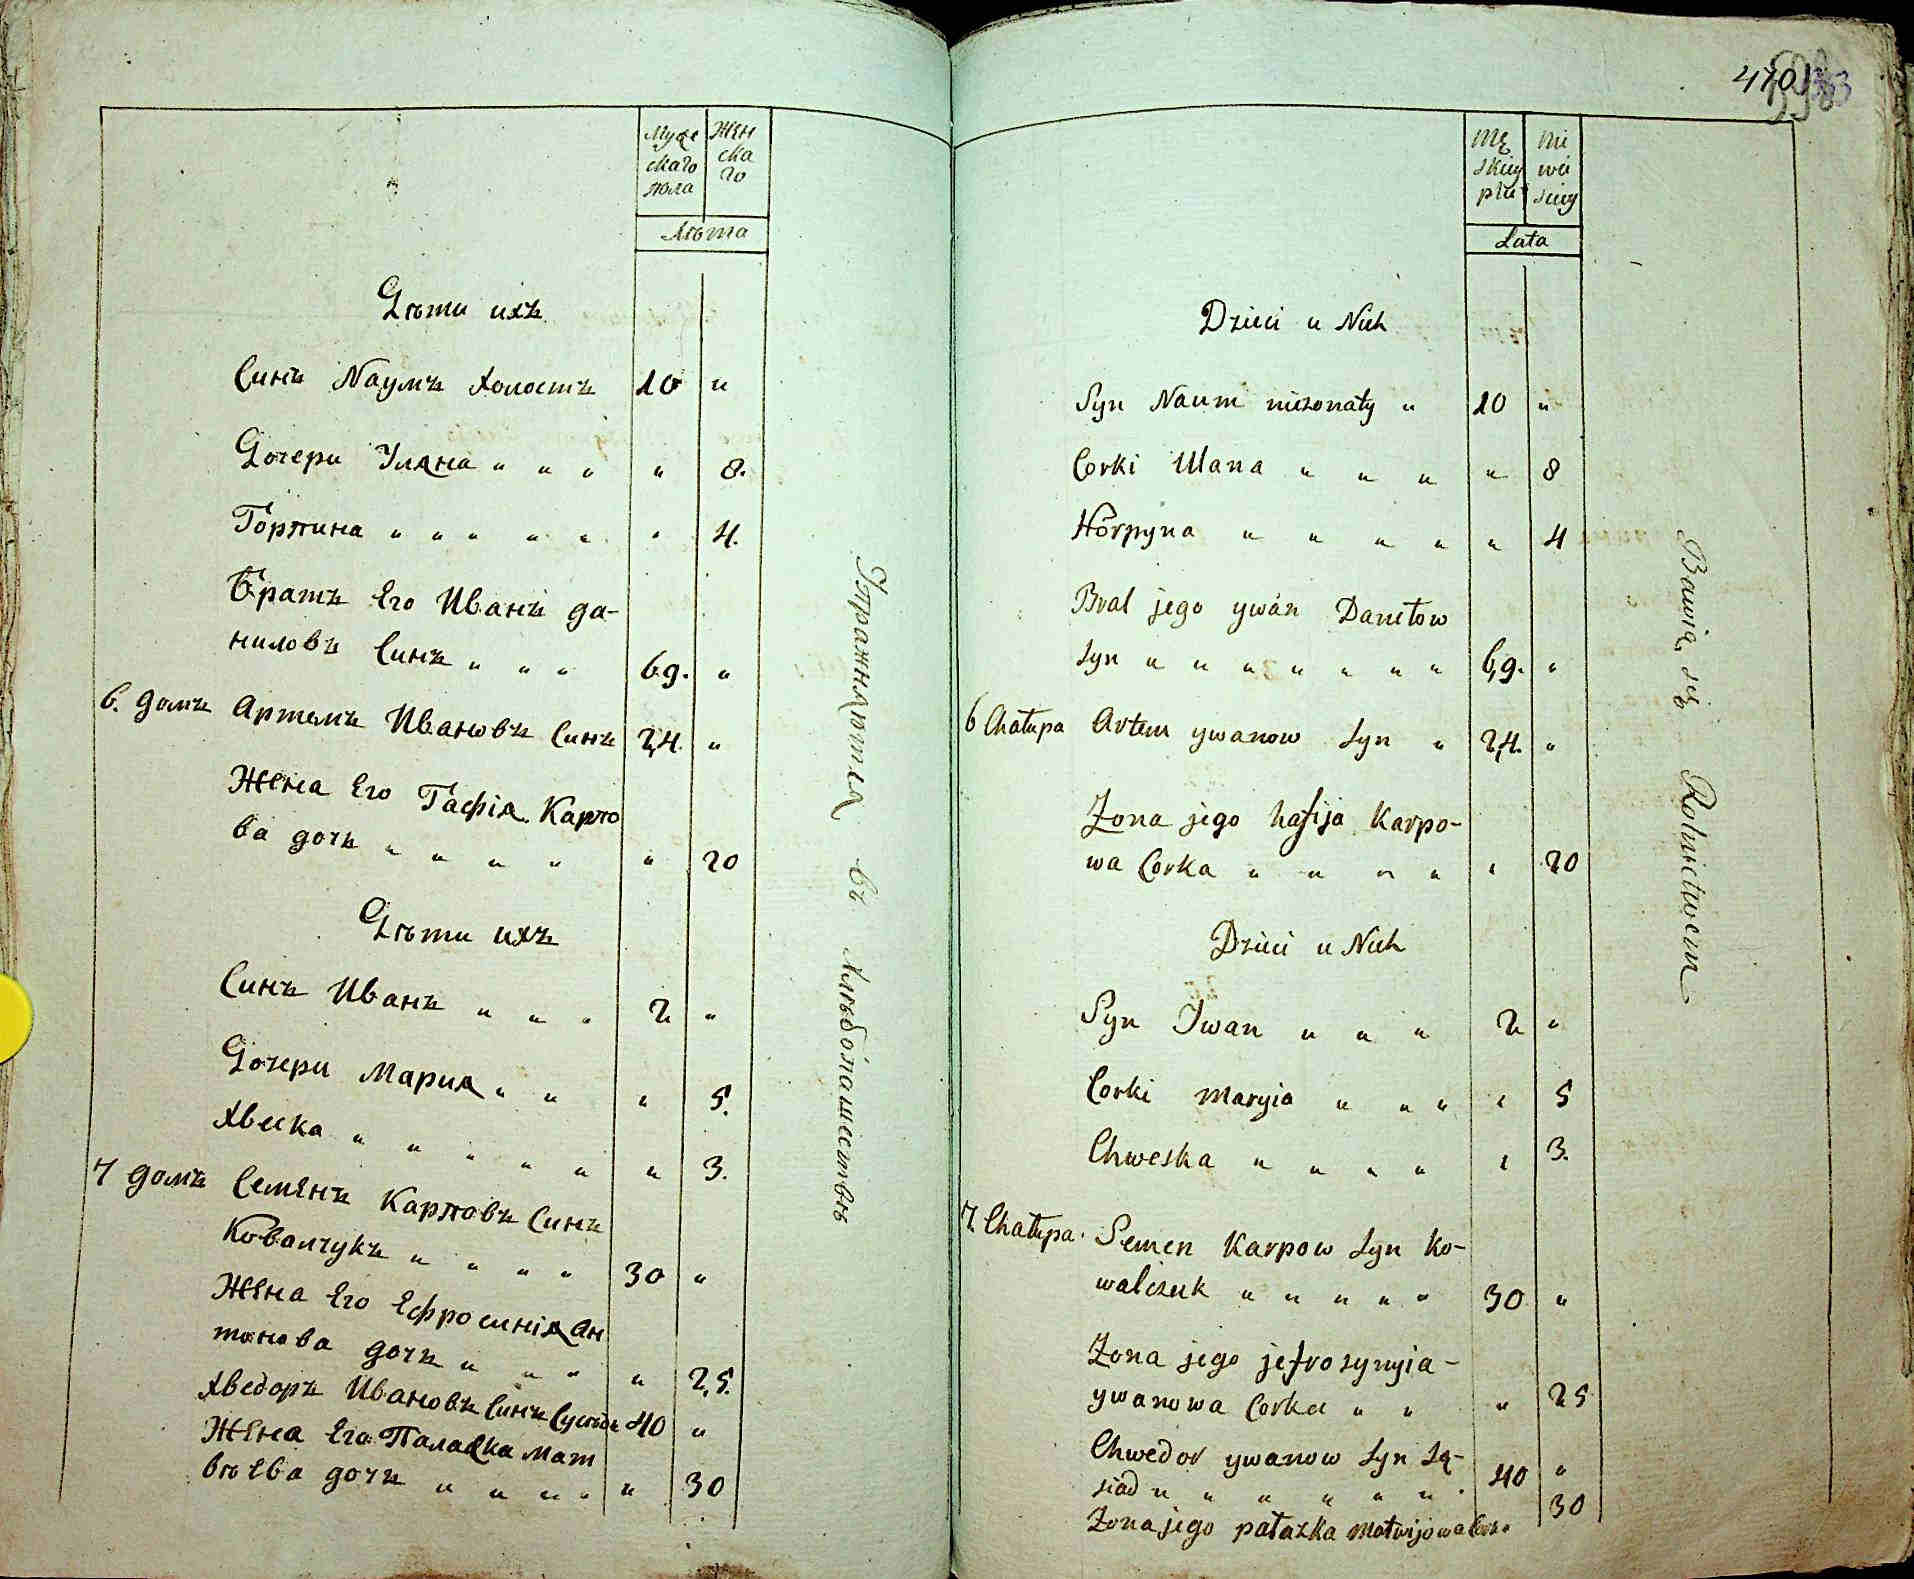 Муже
скаго
пола
Жен
ска
го
Лѣта
Дѣти ихъ
Синъ Наумъ холостъ 10 "
Дочери Уляна " " " " 8.
Горпина " " " " " " 4.
Братъ Его Иванъ да-
ниловъ Синъ " " " 69. "
6. домъ Артемъ Ивановъ Синъ 24. "
Жена Его Гафія Карпо
ва дочъ " " " " " 20
Дѣти ихъ
Синъ Иванъ " " " 2 "
Дочери Мария " " " 5.
Хвеска " " " " " " 3.
7 домъ Семенъ Карповъ Синъ
Ковалчукъ " " " " 30 "
Жена Его Ефросинія Ан
тонова дочъ " " " " 25.
Хведоръ Ивановъ Синъ Сусѣдъ 40 "
Жена Его Палажка Мат
вѣева дочъ " " " " " 30
Упражняются въ хлѣбопашествѣ
470
Mę
skiey
płci
Nie
wie
sciey
Lata
Dzieci u Nich
Syn Naum nieżonaty " 10 "
Corki Ulana " " " " 8
Horpyna " " " " " 4
Brat jego ywan Daniłow
syn " " " " " " " 69. "
6 Chałupa Artem ywanow syn " 24. "
Zona jego hafija Karpo-
wa Corka " " " " " 20
Dzieci u Nich
Syn Iwan " " " 2 "
Corki Maryia " " " " 5
Chweska " " " " " 3.
7. Chałupa. Semen Karpow syn Ko-
walczuk " " " " " 30 "
Zona jego jefrosynyia -
ywanowa Corka " " " 25
Chwedor ywanow syn Są-
siad " " " " " " 40 "
Zona jego pałazka Matwijowa Cor. 30
Bawią się Rolnictwem